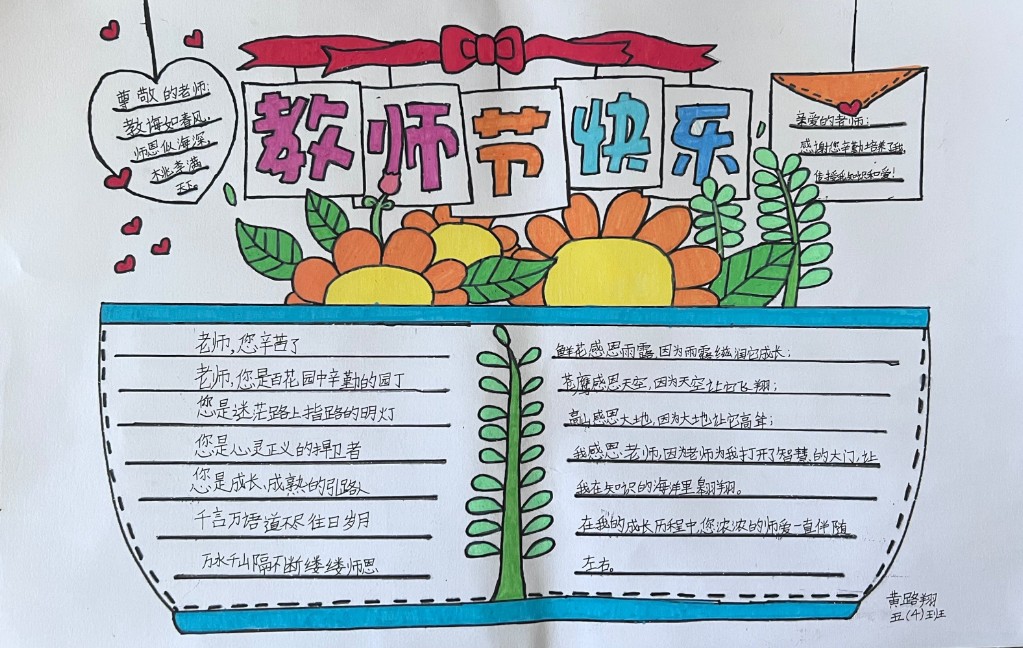 教师节快乐
尊敬的老师:
教诲如春风,
师恩似海深,
桃李满
天下。
亲爱的老师:
感谢您辛勤培养了我,
传授我知识和爱!
老师,您辛苦了
老师,您是百花园中辛勤的园丁
您是迷茫路上指路的明灯
您是心灵正义的捍卫者
您是成长、成熟的引路人
千言万语道不尽往日岁月
万水千山隔不断缕缕师恩
鲜花感恩雨露,因为雨露滋润它成长;
苍鹰感恩天空,因为天空让它飞翔;
高山感恩大地,因为大地让它高耸;
我感恩老师,因为老师为我打开了智慧的大门,让
我在知识的海洋里翱翔。
在我的成长历程中,您浓浓的师爱一直伴随
左右。
黄路翔
五(4)班